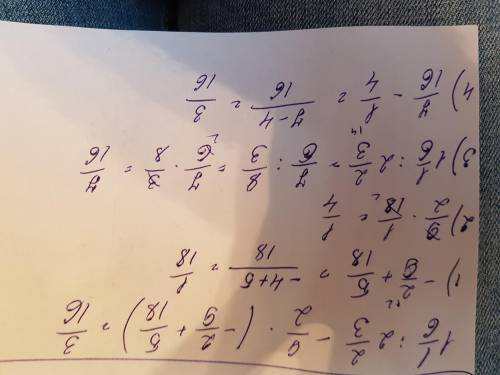 1 1/6 : 2 2/3 - 9/2 · (-2/9 + 5/18) = 3/16
1) -2/9 + 5/18 = (-4+5)/18 = 1/18
2) 9/2 · 1/18 = 1/4
3) 1 1/6 : 2 2/3 = 7/6 : 8/3 = 7/6 · 3/8 = 7/16
4) 7/16 - 1/4 = (7-4)/16 = 3/16